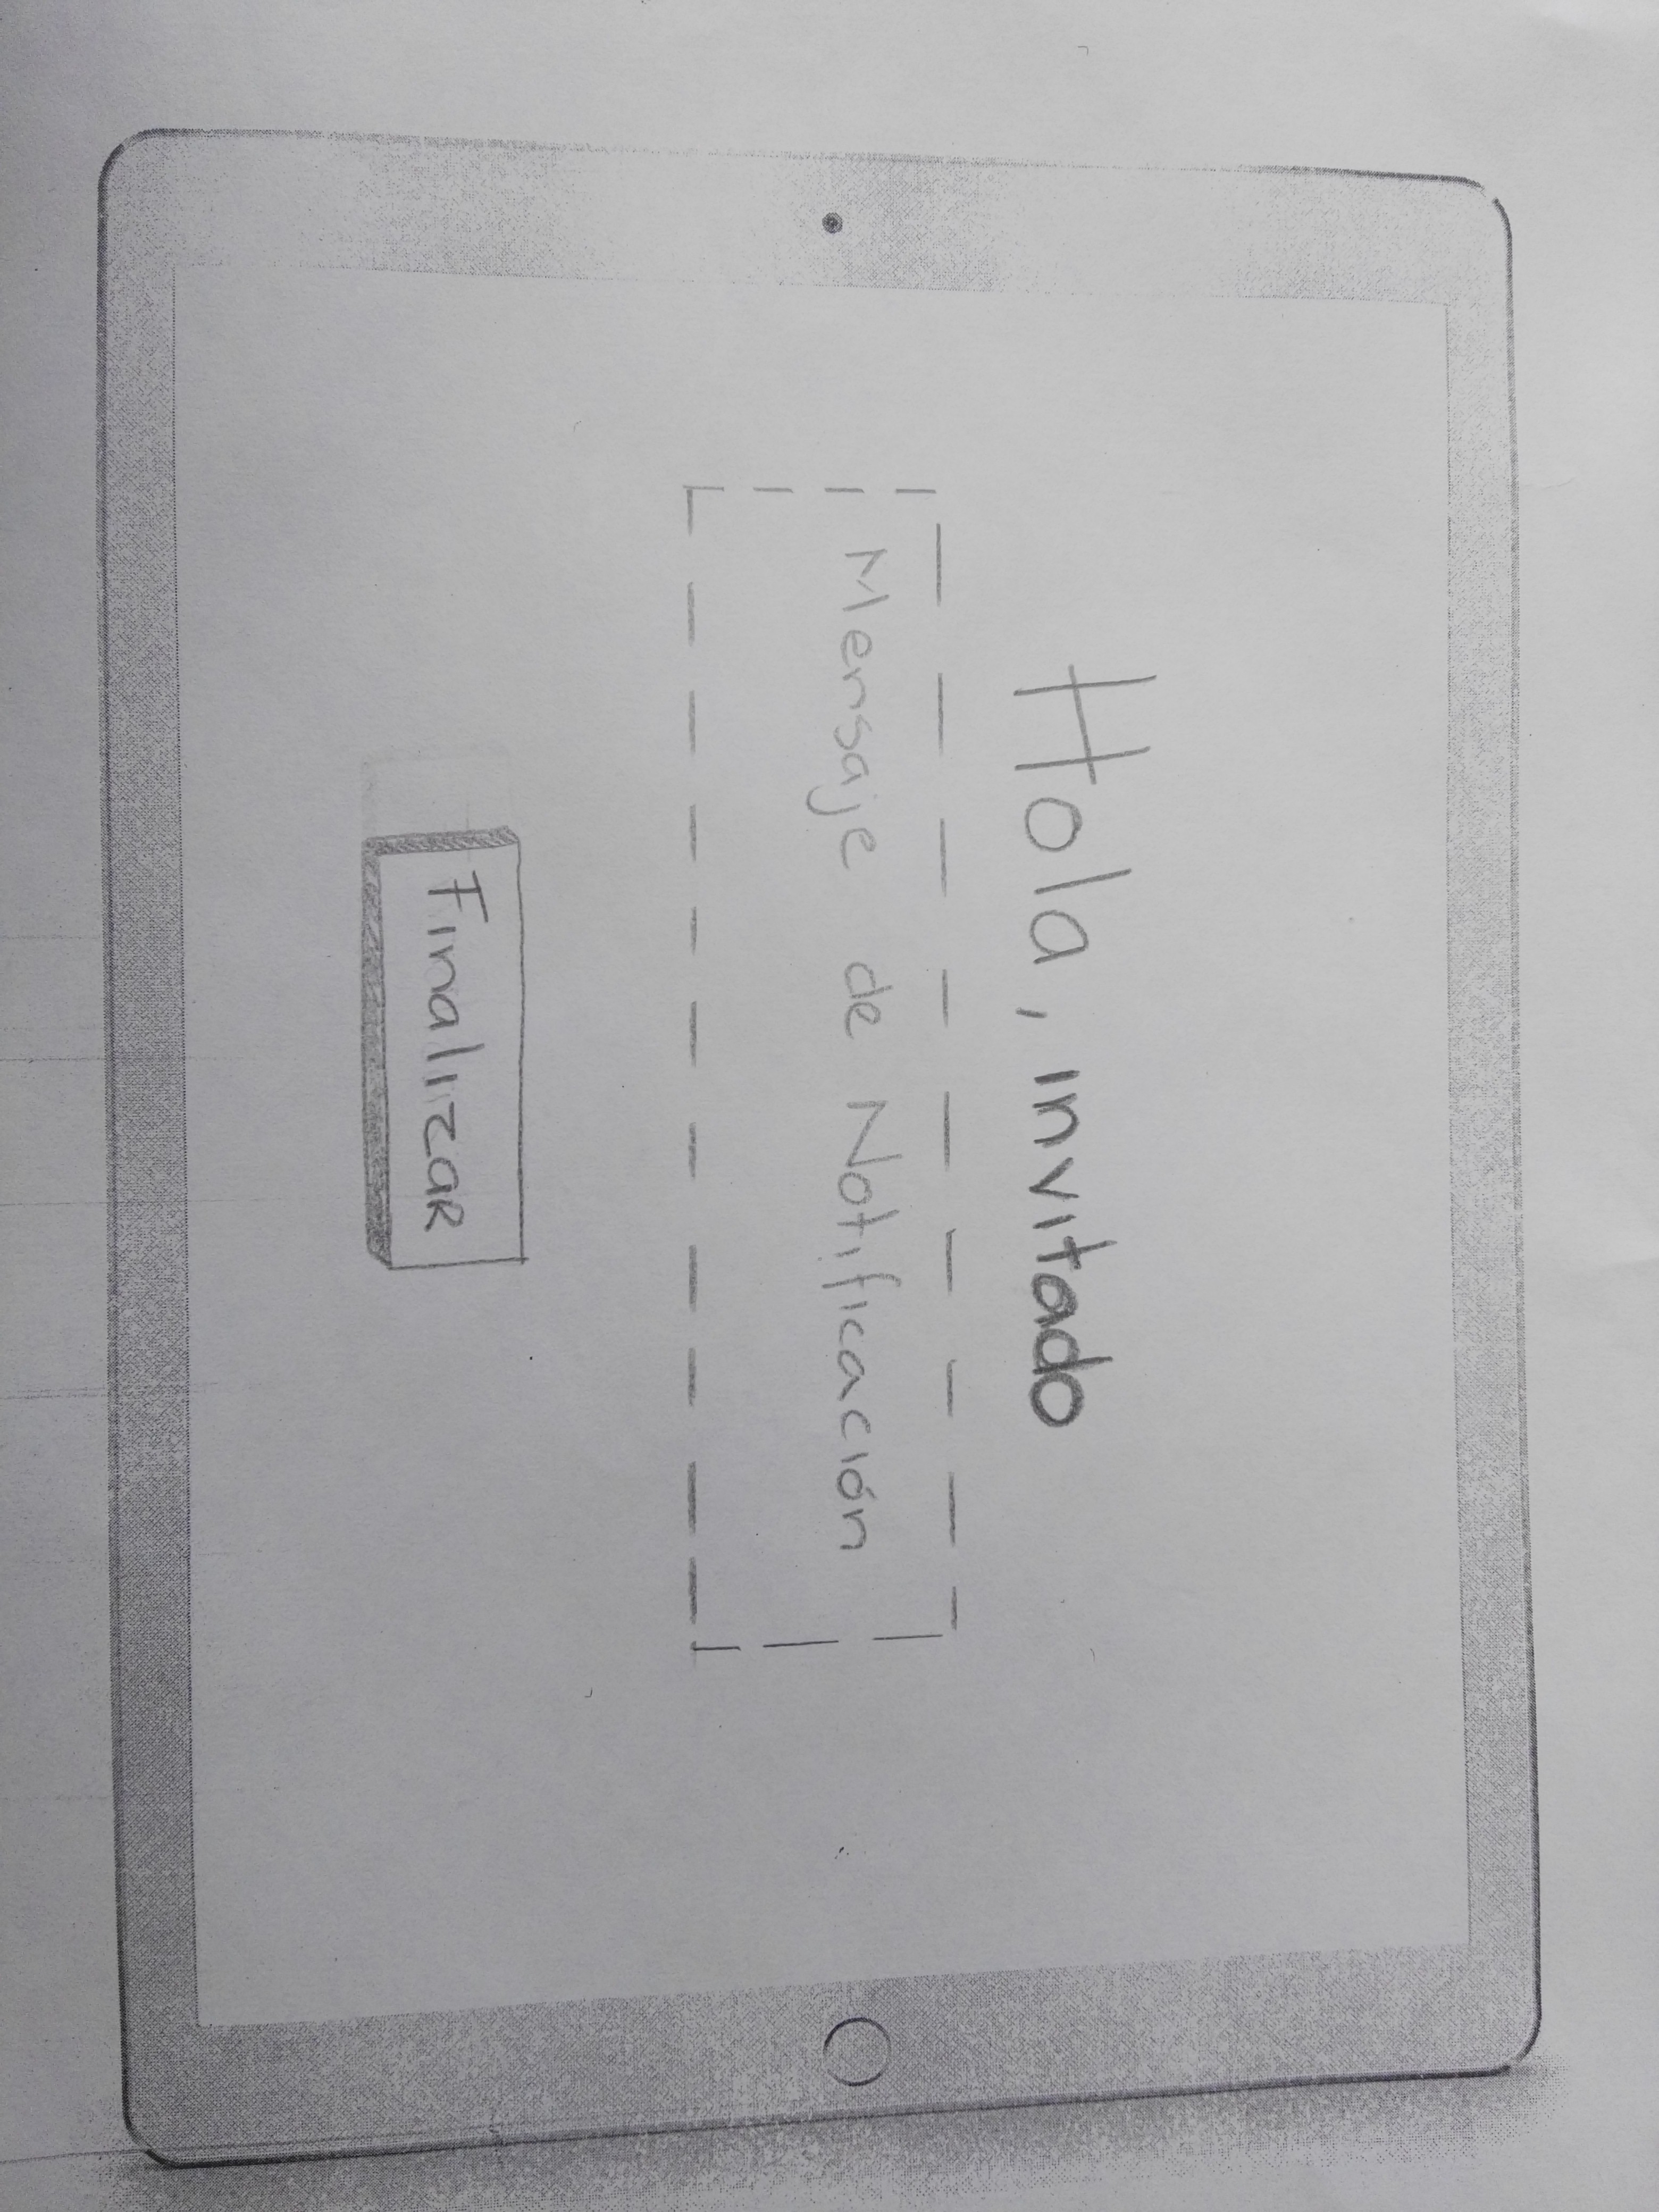 Hola, invitado
Mensaje de Notificación
Finalizar